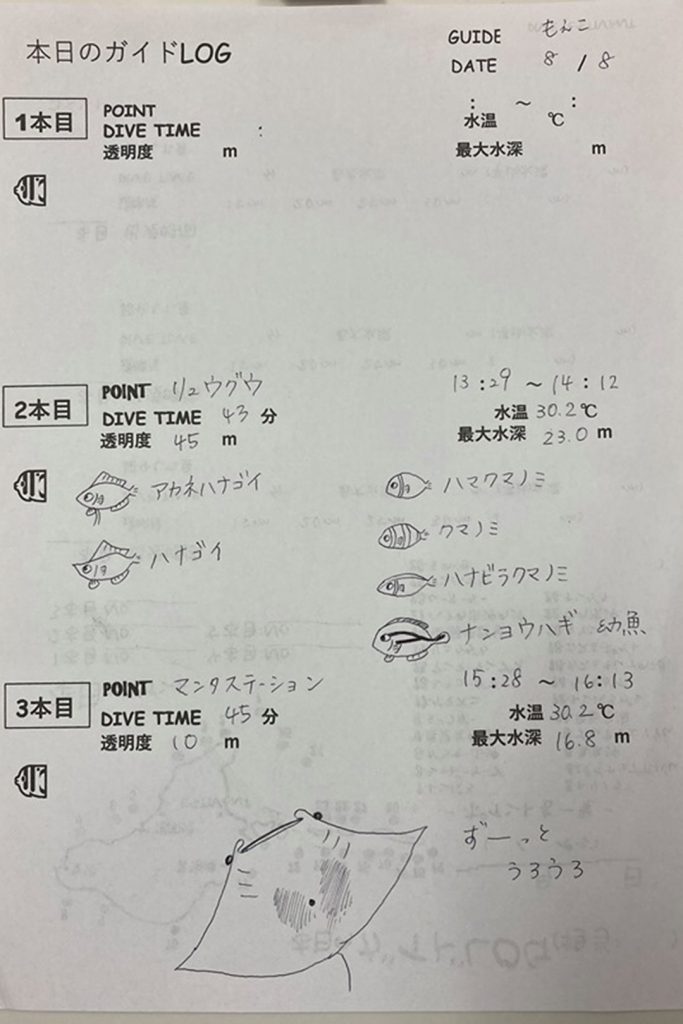 本日のガイドLOG
GUIDE もんこ
DATE 8 / 8
1本目
POINT
DIVE TIME :
透明度 m
: ~ :
水温 ℃
最大水深 m
2本目
POINT リュウグウ
DIVE TIME 43 分
透明度 45 m
13:29 ~ 14:12
水温 30.2℃
最大水深 23.0 m
アカネハナゴイ
ハナゴイ
ハマクマノミ
クマノミ
ハナビラクマノミ
ナンヨウハギ 幼魚
3本目
POINT マンタステーション
DIVE TIME 45 分
透明度 10 m
15:28 ~ 16:13
水温 30.2℃
最大水深 16.8 m
ずーっと
うろうろ